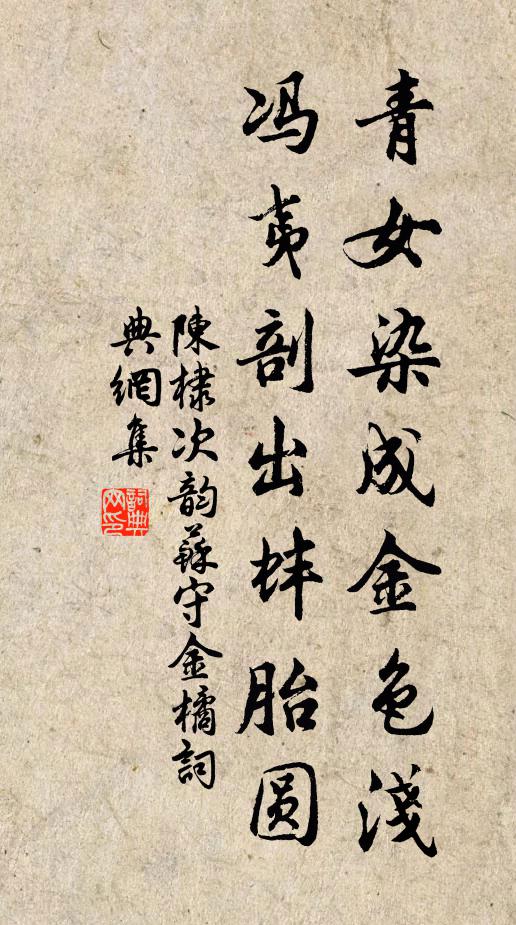 青女染成金色淺
冯夷剖出蚌胎圆
陳棣次韵蘇守金橘詞
典網集
詞典网印